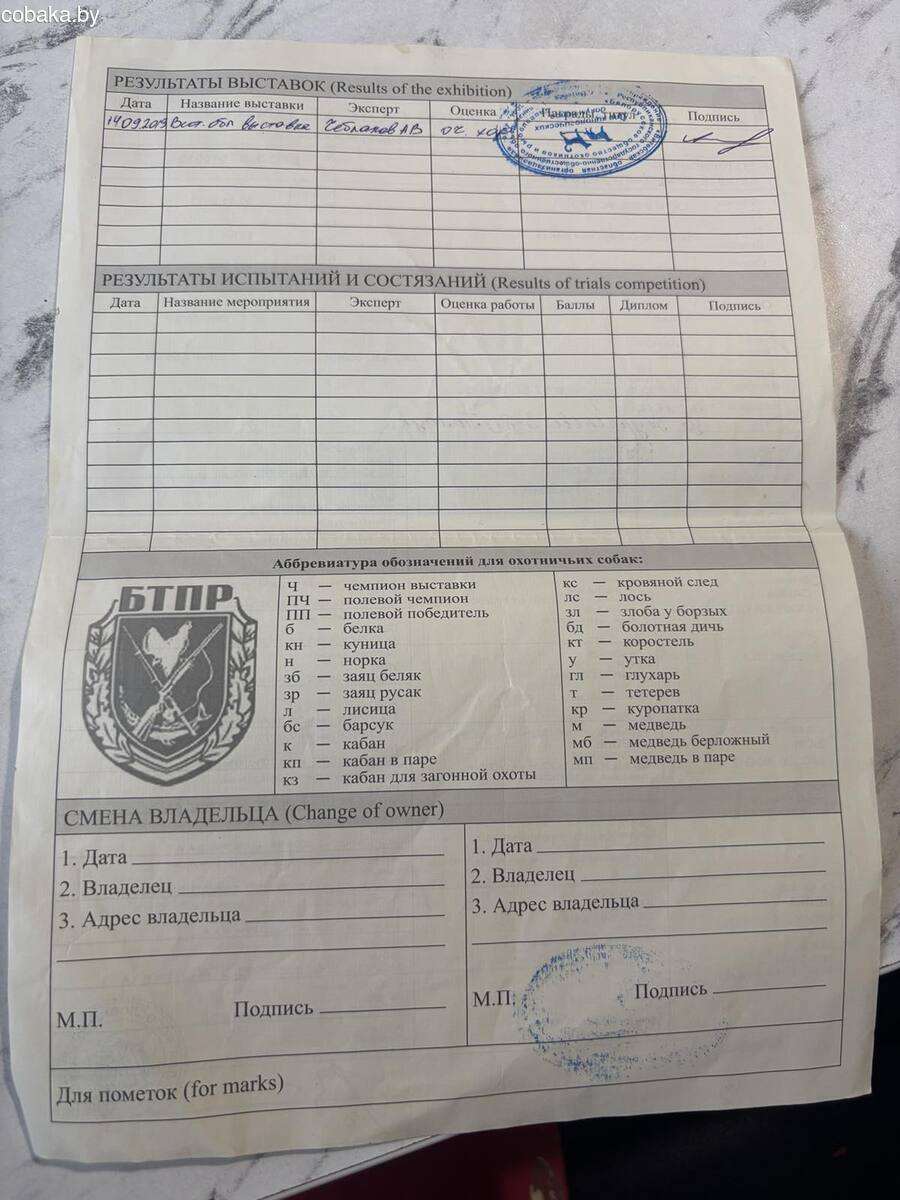 cobaka.by
РЕЗУЛЬТАТЫ ВЫСТАВОК (Results of the exhibition)
Дата Название выставки Эксперт Оценка Награды, титул Подпись
14092019 Вит. обл выставка АВ оч. хор
РЕЗУЛЬТАТЫ ИСПЫТАНИЙ И СОСТЯЗАНИЙ (Results of trials competition)
Дата Название мероприятия Эксперт Оценка работы Баллы Диплом Подпись
Аббревиатура обозначений для охотничьих собак:
БТПР
Ч — чемпион выставки
ПЧ — полевой чемпион
ПП — полевой победитель
б — белка
кн — куница
н — норка
зб — заяц беляк
зр — заяц русак
л — лисица
бс — барсук
к — кабан
кп — кабан в паре
кз — кабан для загонной охоты
кс — кровяной след
лс — лось
зл — злоба у борзых
бд — болотная дичь
кт — коростель
у — утка
гл — глухарь
т — тетерев
кр — куропатка
м — медведь
мб — медведь берложный
мп — медведь в паре
СМЕНА ВЛАДЕЛЬЦА (Change of owner)
1. Дата
2. Владелец
3. Адрес владельца
М.П. Подпись
1. Дата
2. Владелец
3. Адрес владельца
М.П. Подпись
Для пометок (for marks)